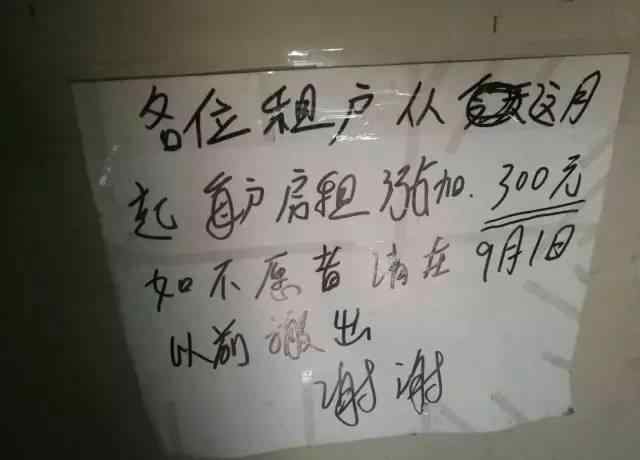 各位租户从这月
起每户房租增加.300元
如不愿者请在9月1日
以前搬出
谢谢